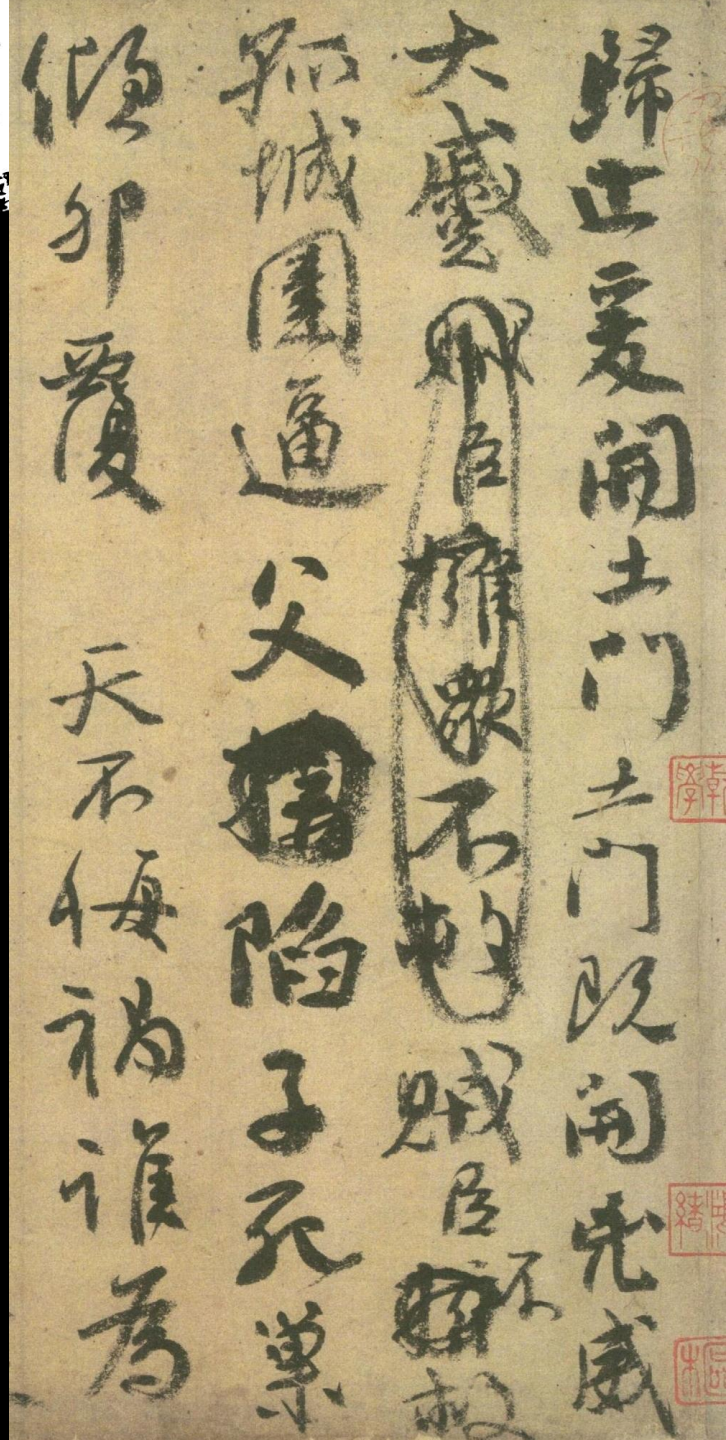 歸止爰開土門土門既開兇威
大蹙賊臣擁衆不救賊臣不救
孤城圍逼父陷子死巢
傾卵覆天不悔禍誰為